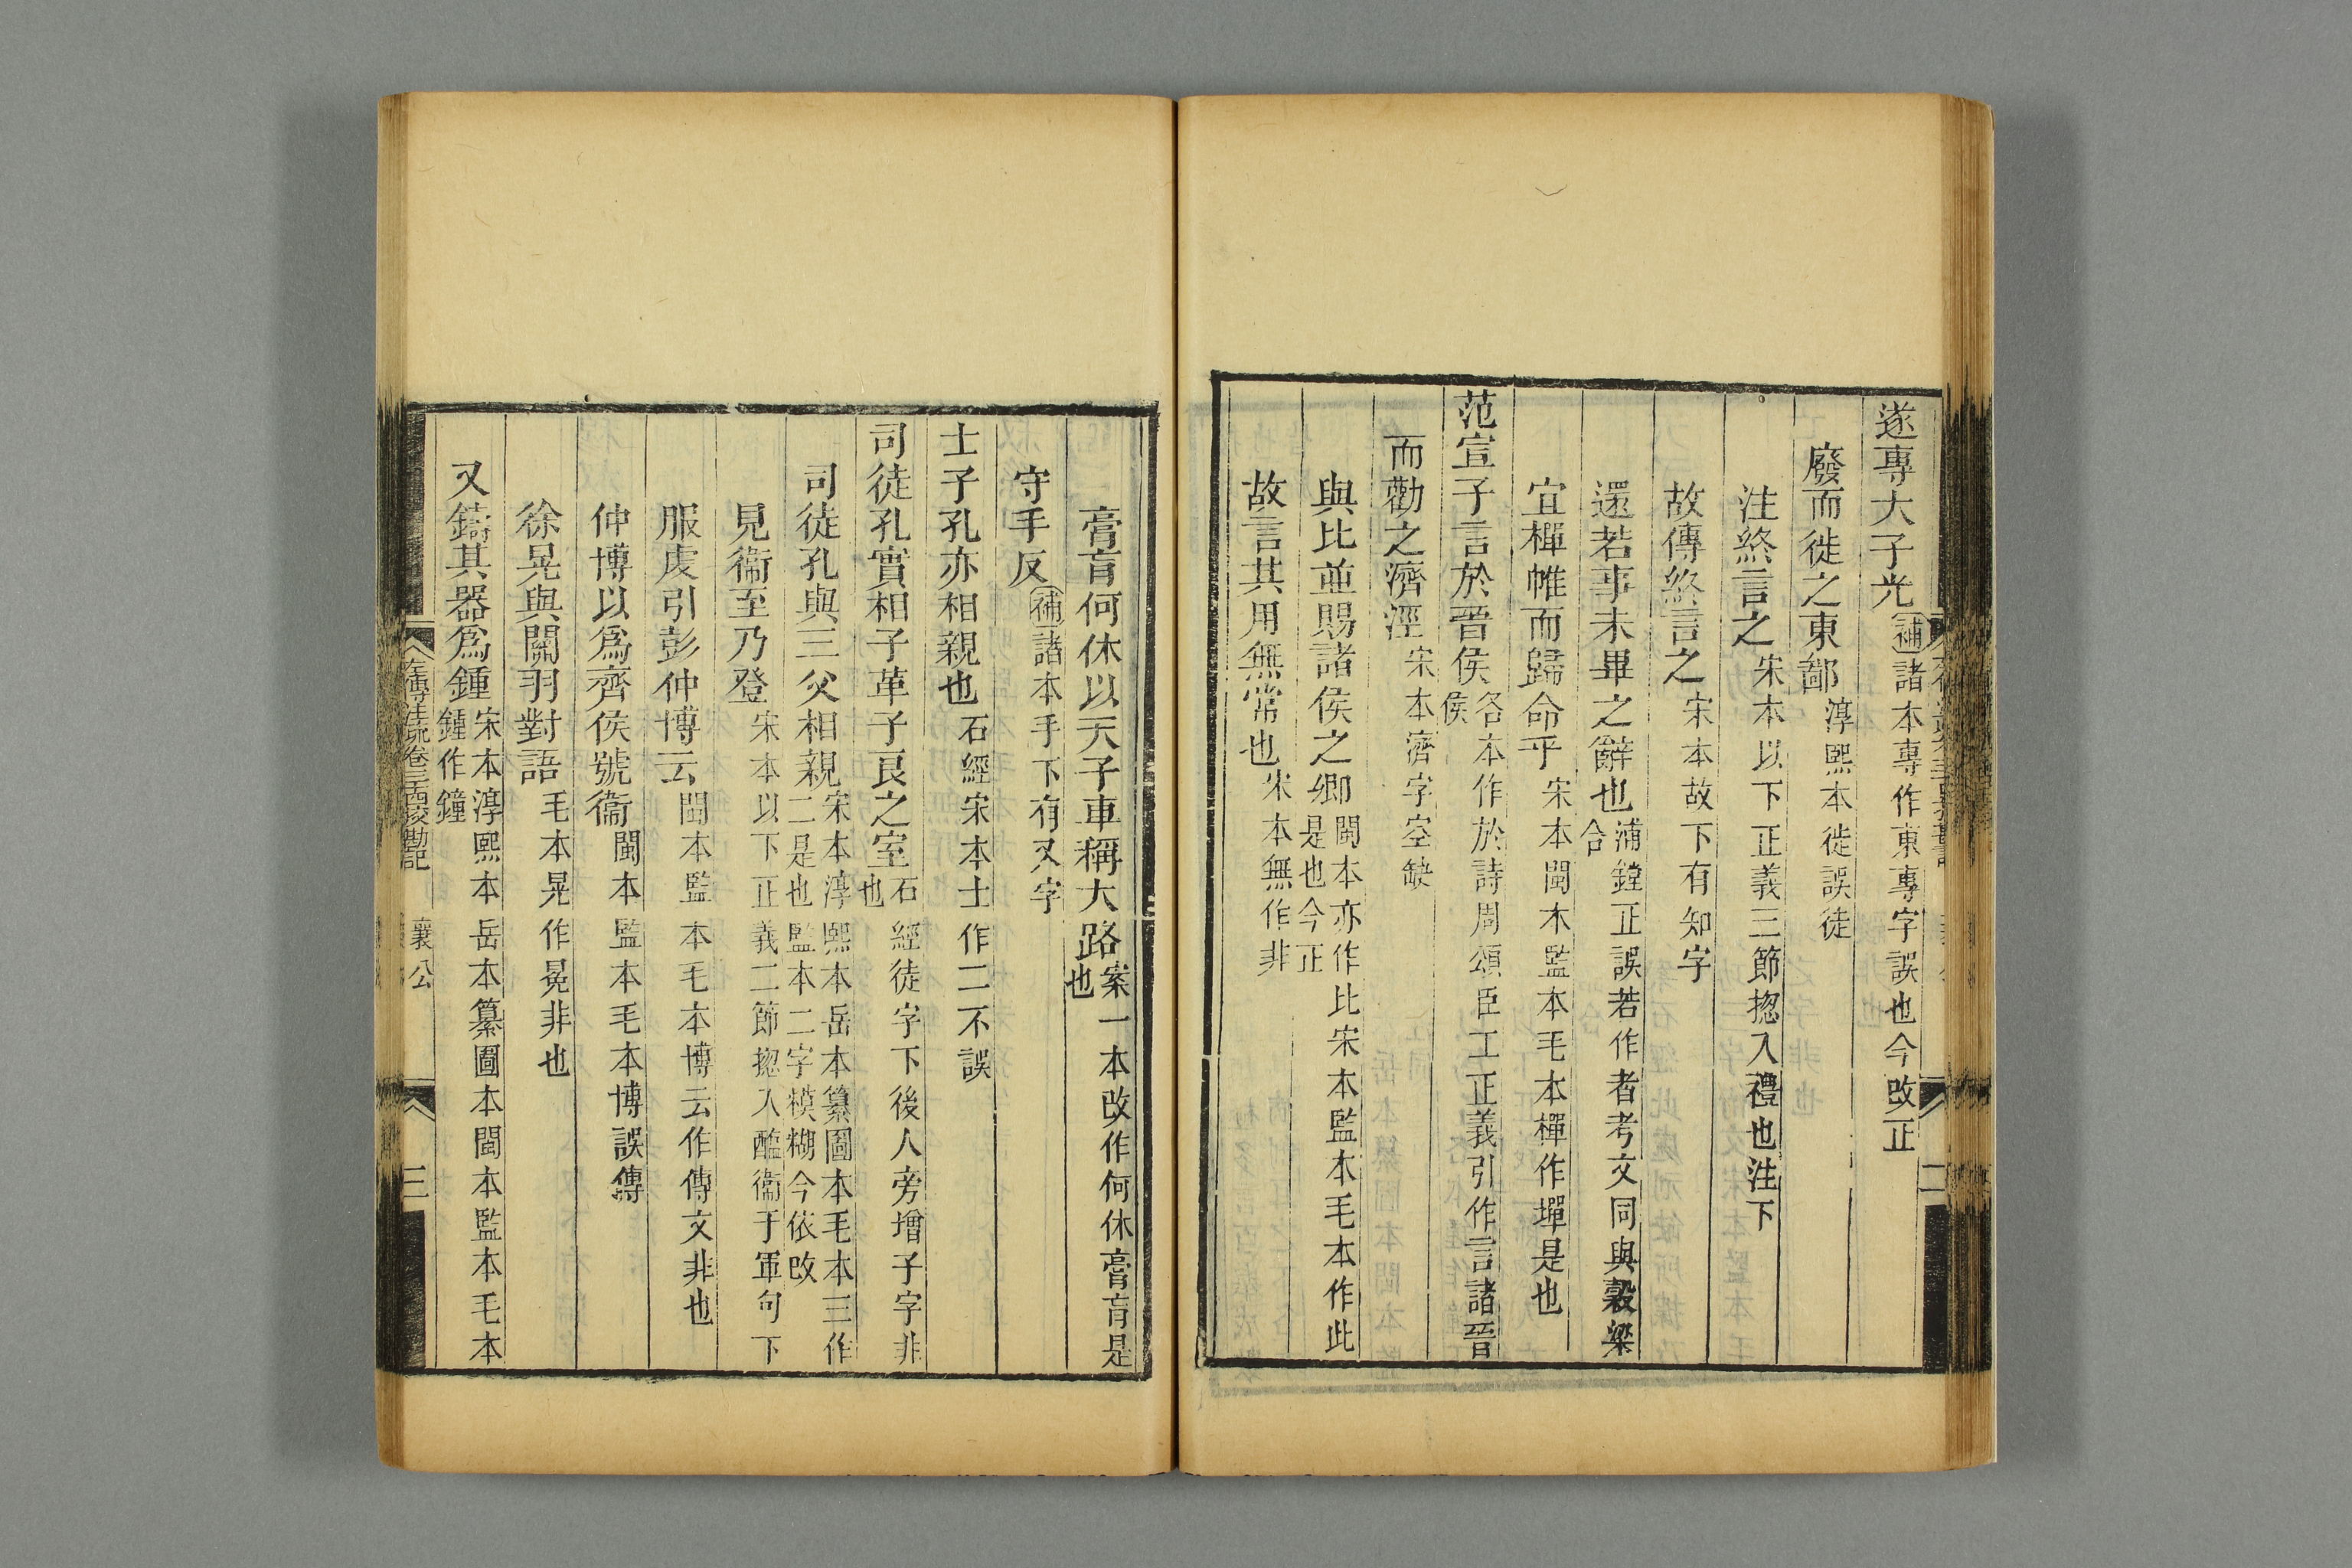 遂專大子光補諸本專作東專字誤也今改正
廢而徙之東鄙淳熙本徙誤徒
注終言之宋本以下正義三節揔入禮也注下
故傳終言之宋本故下有知字
還若事未畢之辭也浦鏜正誤若作者考文同與穀梁合
宜樿帷而歸命乎宋本閩本監本毛本樿作墠是也
范宣子言於晉侯各本作於詩周頌臣工正義引作言諸晉侯
而勸之濟涇宋本濟字空缺
與比並賜諸侯之卿閩本亦作比宋本監本毛本作此是也今正
故言其用無常也宋本無作非
膏肓何休以天子車稱大路案一本改作何休膏肓是也
守手反補諸本手下有又字
士子孔亦相親也石經宋本士作二不誤
司徒孔實相子革子良之室石經徒字下後人旁增子字非也
司徒孔與三父相親宋本淳熙本岳本纂圖本毛本三作二是也監本二字模糊今依改
見衞至乃登宋本以下正義二節揔入醢衞于軍句下
服虔引彭仲博云閩本監本毛本博云作傳文非也
仲博以爲齊侯號衞閩本監本毛本博誤傳
徐晃與關羽對語毛本晃作冕非也
又鑄其器爲鍾宋本淳熙本岳本纂圖本閩本監本毛本鍾作鐘
左傳注疏卷三十四挍勘記 襄公 三